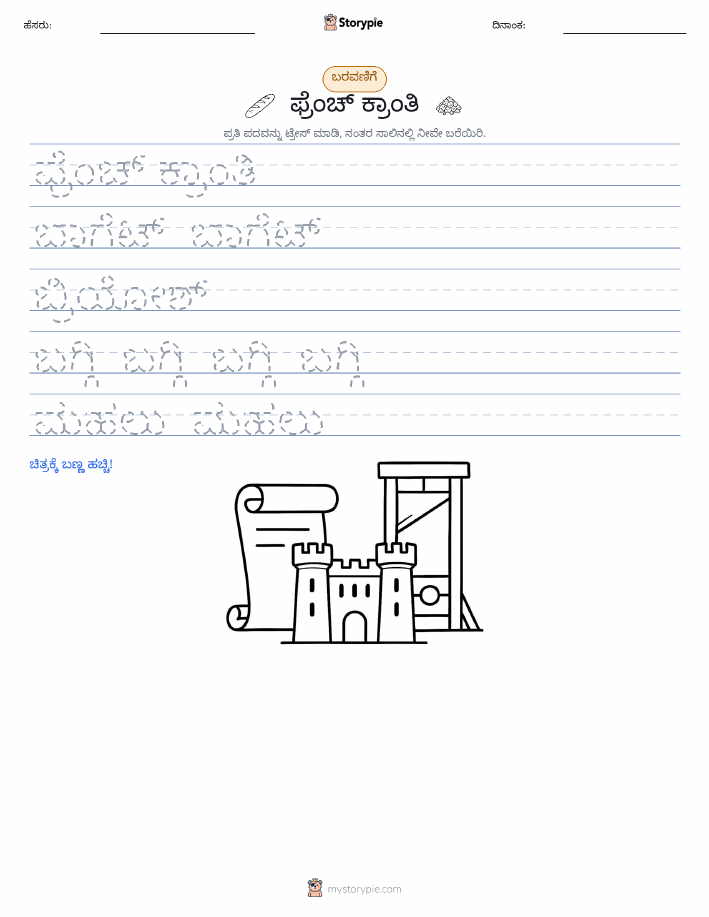 ಹೆಸರು:
Storypie
ದಿನಾಂಕ:
ಬರವಣಿಗೆ
ಫ್ರೆಂಚ್ ಕ್ರಾಂತಿ
ಪ್ರತಿ ಪದವನ್ನು ಟ್ರೇಸ್ ಮಾಡಿ, ನಂತರ ಸಾಲಿನಲ್ಲಿ ನೀವೇ ಬರೆಯಿರಿ.
ಫ್ರೆಂಚ್ ಕ್ರಾಂತಿ
ಬಾಗೆಟ್ ಬಾಗೆಟ್
ಬ್ರಿಯೋಶ್
ಬಗ್ಗೆ ಬಗ್ಗೆ ಬಗ್ಗೆ ಬಗ್ಗೆ
ಮಹಲು ಮಹಲು
ಚಿತ್ರಕ್ಕೆ ಬಣ್ಣ ಹಚ್ಚಿ!
mystorypie.com